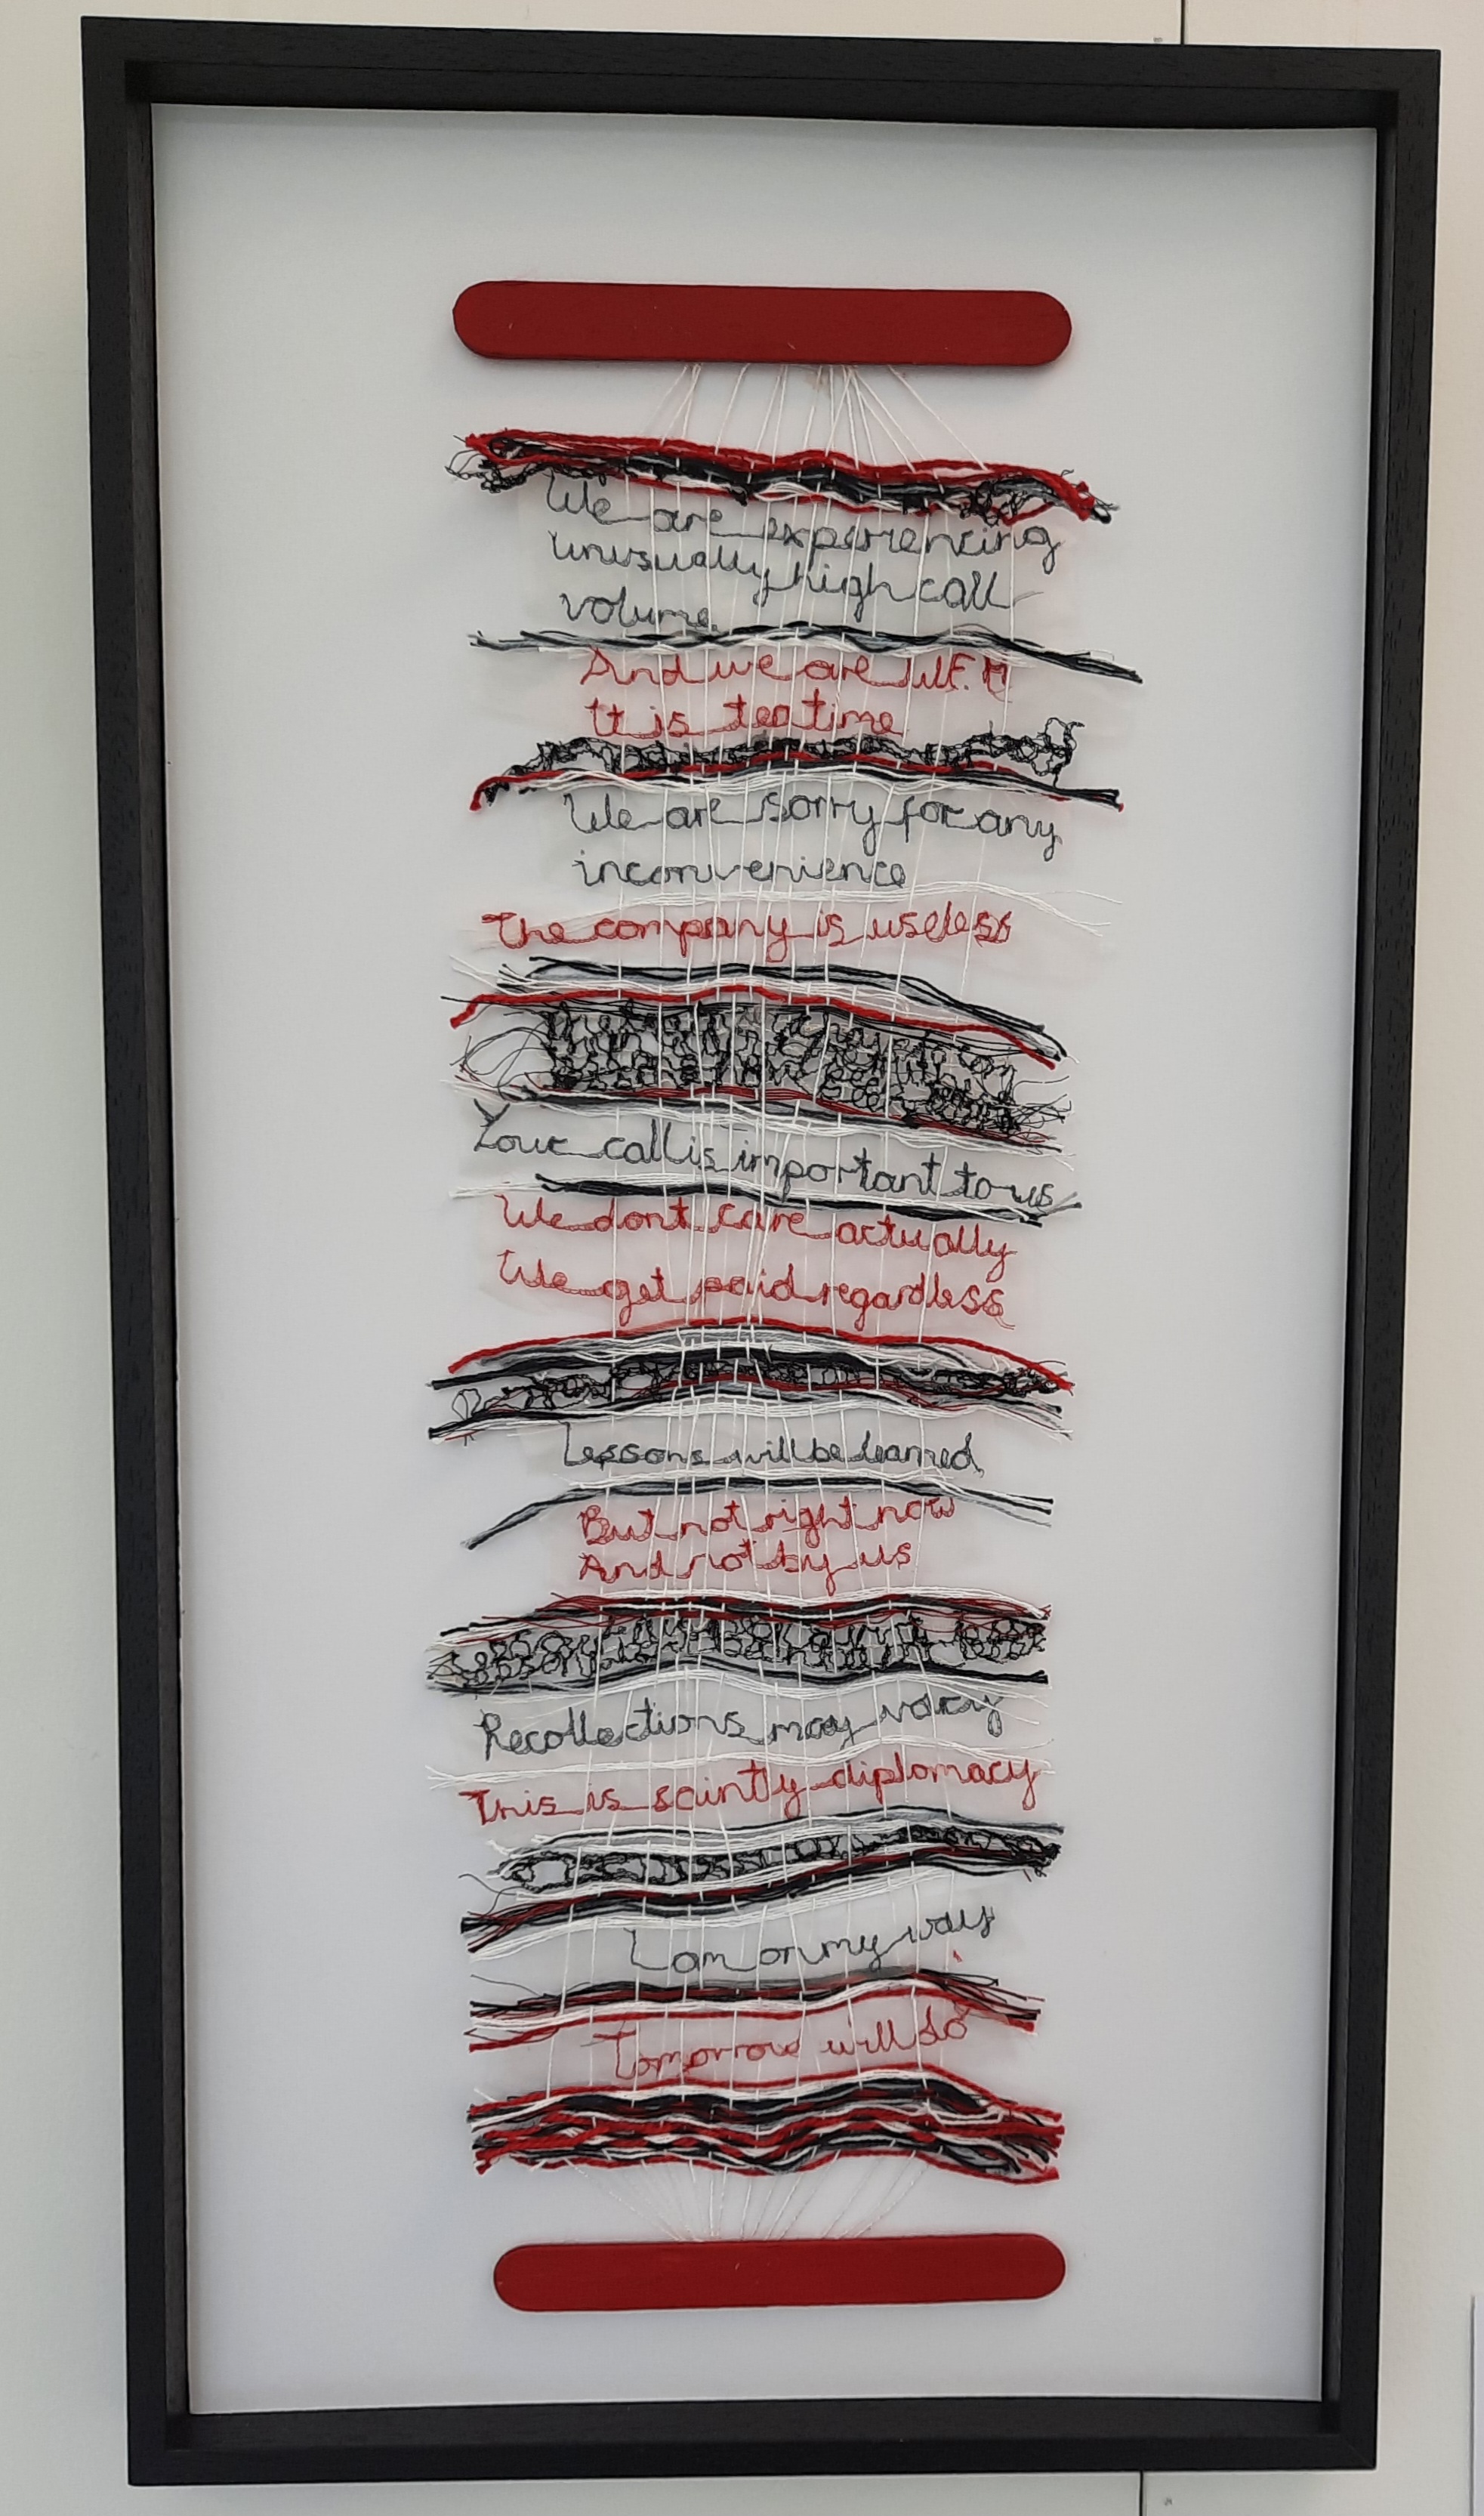 We are experiencing
unusually high call
volume.
And we are W.F.H
It is tea time
We are sorry for any
inconvenience
The company is useless
Your call is important to us
We dont care actually
We get paid regardless
Lessons will be learned
But not right now
And not by us
Recollections may vary
This is saintly diplomacy
I am on my way
Tomorrow will do